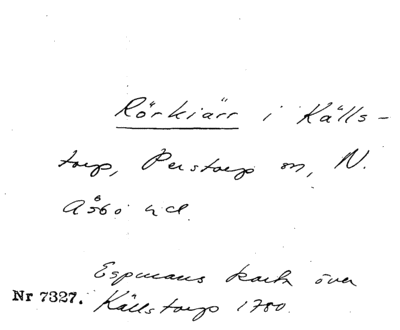 Rörkiärr i Källs-
torp, Perstorp sn, N.
Åsbo hd.
Espmans karta över
Nr 7327. Källstorp 1780.